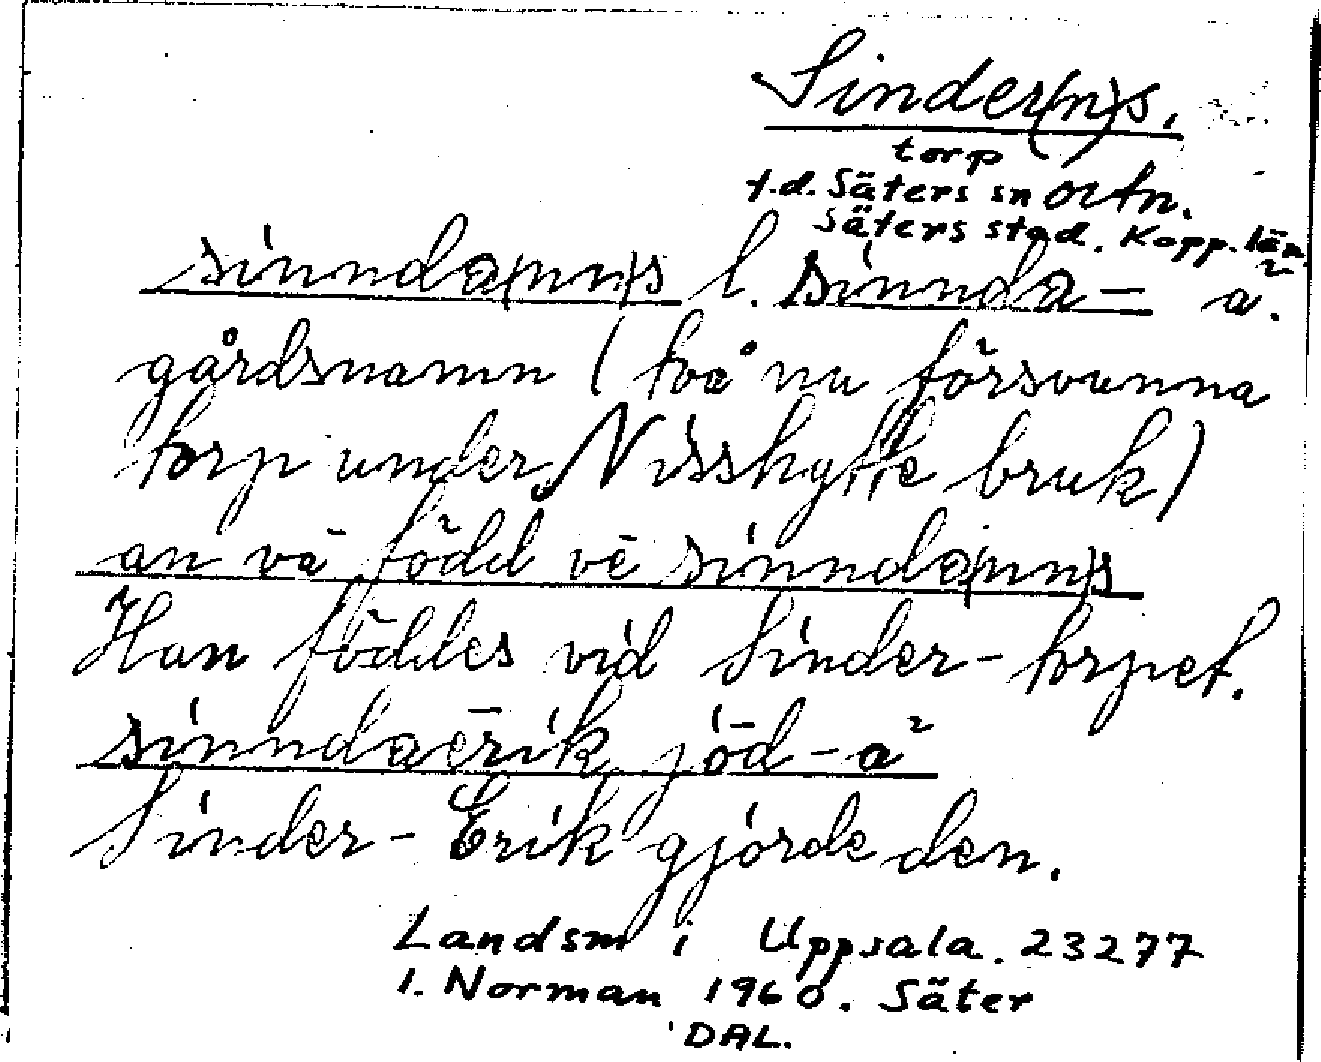 Sinder(n)s,
torp
f.d. Säters sn ortn.
Säters stad. Kopp. län
sinnda(nn)s l. sinnda- ä.
gårdsnamn (två nu försvunna
torp under Nisshytte bruk)
an vā född vē sinnda(nn)s
Han föddes vid Sinder-torpet.
sinndaērik jōd-ä
Sinder-Erik gjorde den.
Landsm i Uppsala. 23277
I. Norman 1960. Säter
DAL.